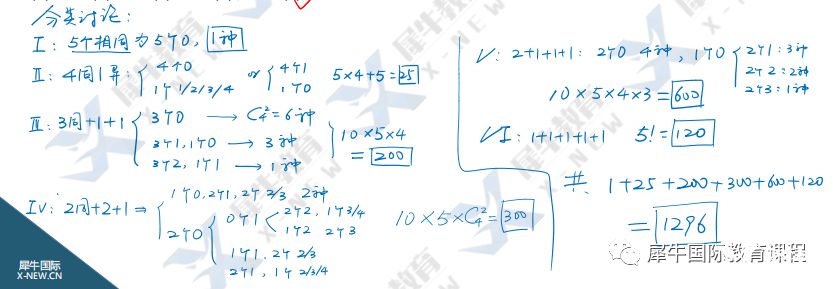 分类讨论:
I: 5个相同为5个0, 1种
II: 4同1异: { 4个0 or { 4个1 5×4+5=25
1个1/2/3/4 1个0
III: 3同+1+1 { 3个0 → C₄²=6种
3个1, 1个0 → 3种
3个2, 1个1 → 1种
10×5×4
=200
IV: 2同+2+1 ⇒ { 1个0, 2个1, 2个2/3 2种
2个0 { 0个1 { 2个2, 1个3/4
1个2 2个3
1个1, 2个2/3
2个1, 1个2/3/4
10×5×C₄²=300
V: 2+1+1+1: 2个0 4种, 1个0 { 2个1: 3种
2个2: 2种
2个3: 1种
10×5×4×3=600
VI: 1+1+1+1+1 5!=120
共 1+25+200+300+600+120
=1296
犀牛国际
X-NEW.CN
犀牛国际教育课程
犀牛教育
X-NEW